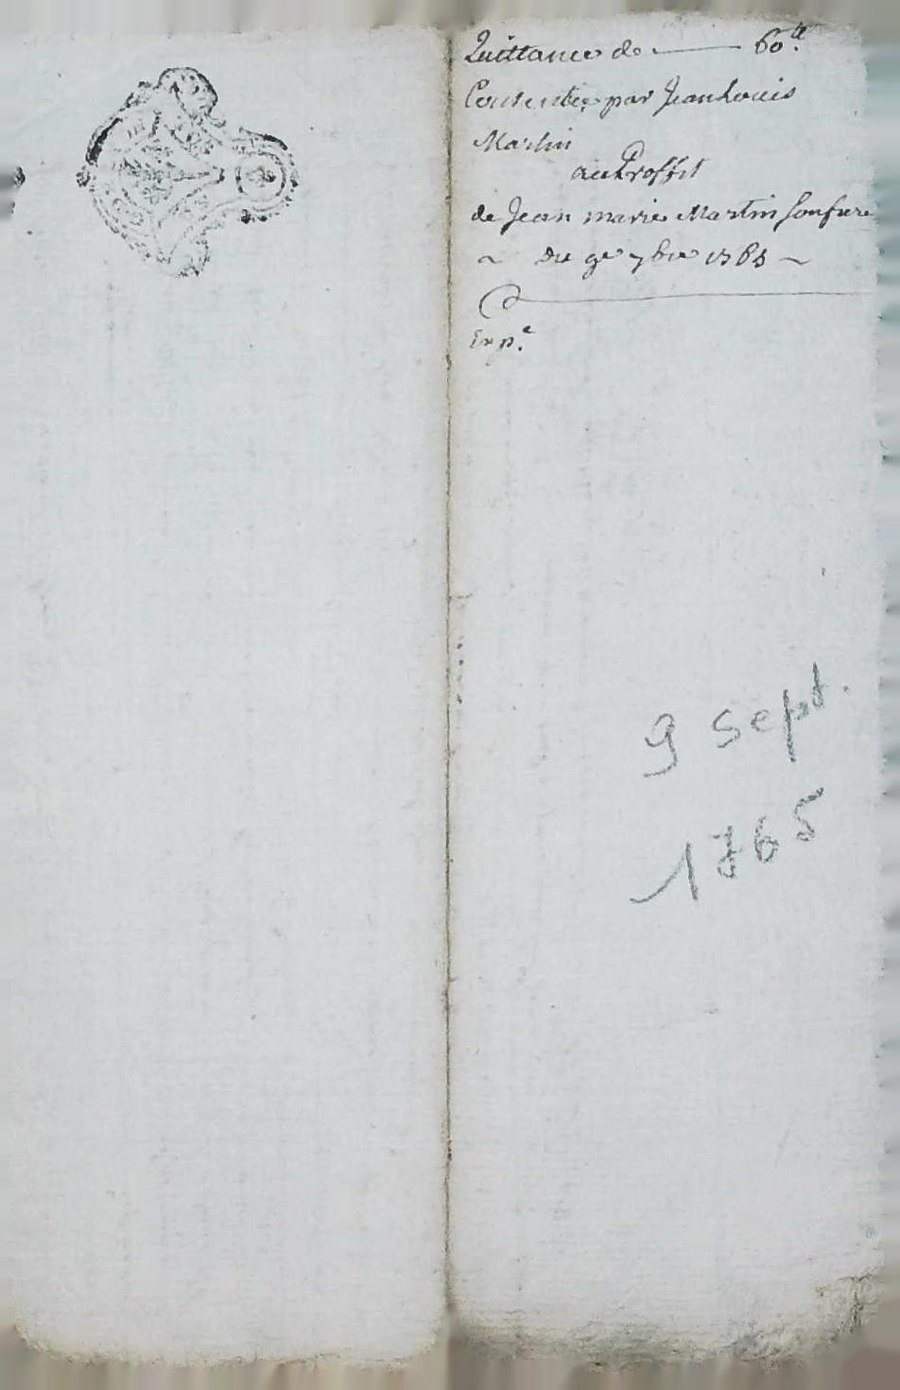 Quittance de —— 60.tt
Consentie par Jean Louis
Martin
au Proffit
de Jean marie Martin son frere
~ du 9e 7bre 1765 ~
Exp.e
9 sept.
1765